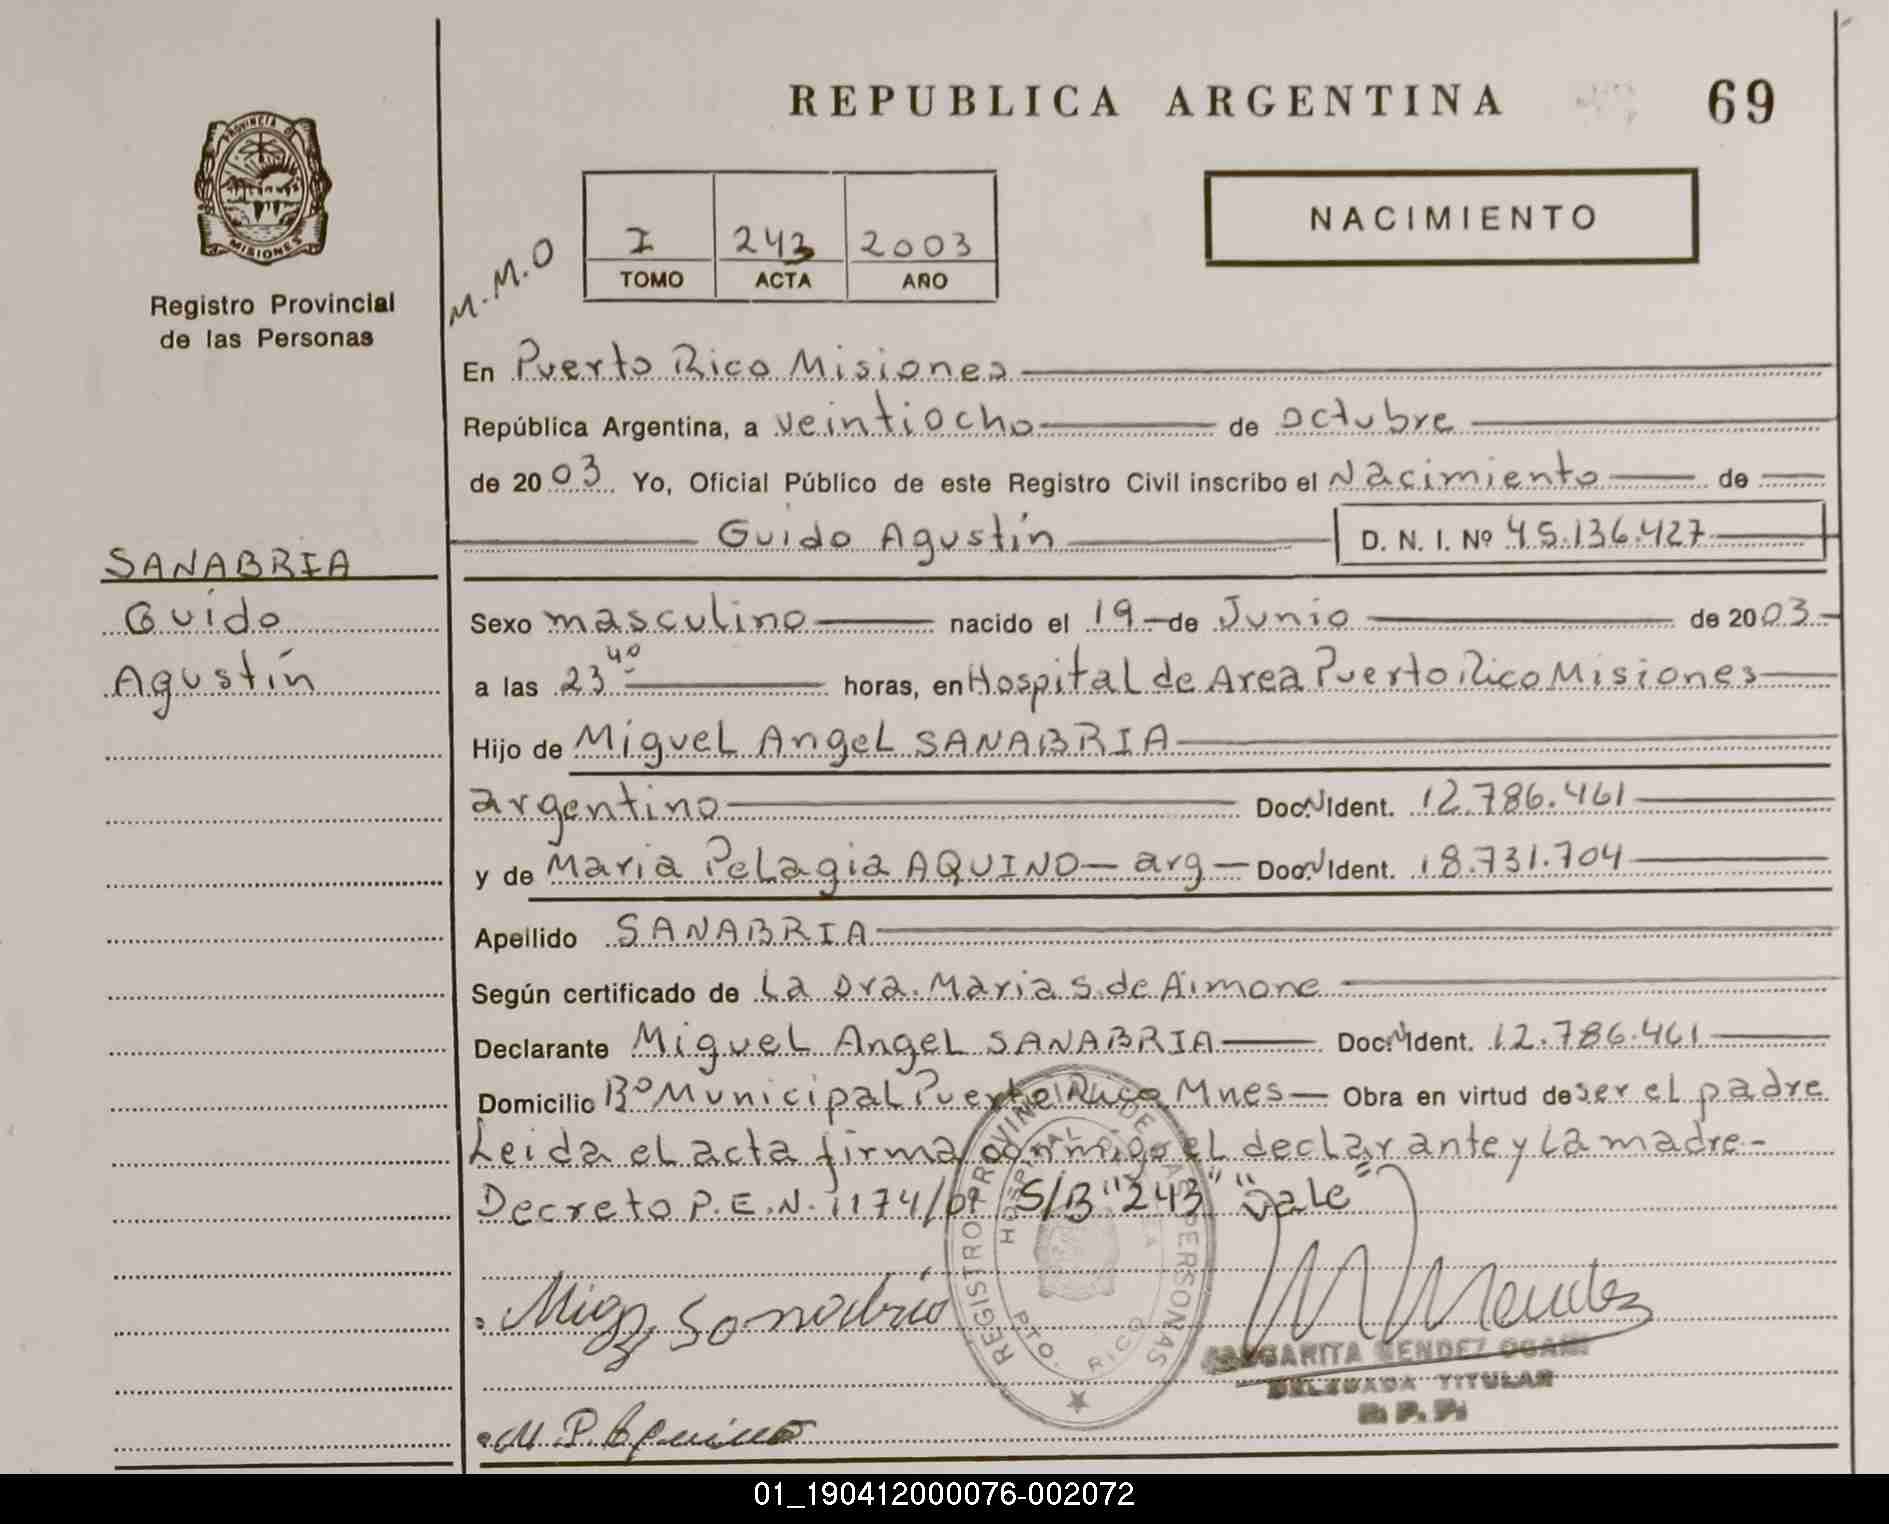 REPUBLICA ARGENTINA 69
PROVINCIA DE
MISIONES
Registro Provincial
de las Personas
M.M.O
I 243 2003
TOMO ACTA AÑO
NACIMIENTO
En Puerto Rico Misiones
República Argentina, a veintiocho de octubre
de 2003 Yo, Oficial Público de este Registro Civil inscribo el Nacimiento de
Guido Agustín D. N. I. Nº 45.136.427
SANABRIA
Guido
Agustín
Sexo masculino nacido el 19 de Junio de 2003
a las 23 40 horas, en Hospital de Area Puerto Rico Misiones
Hijo de Miguel Angel SANABRIA
argentino Doc. N Ident. 12.786.461
y de Maria Pelagia AQUINO - arg - Doc. N Ident. 18.731.704
Apellido SANABRIA
Según certificado de La Dra. Maria S. de Aimone
Declarante Miguel Angel SANABRIA Doc. N Ident. 12.786.461
Domicilio Bº Municipal Puerto Rico Mnes - Obra en virtud de ser el padre
Leida el acta firma conmigo el declarante y la madre -
Decreto P.E.N. 1174/01 S/B "243" "Vale"
REGISTRO PROVINCIAL DE LAS PERSONAS
HOSPITAL
PTO. RICO
Sanabria
M Mendez
MARGARITA MENDEZ
DELEGADA TITULAR
R. P. P.
M. P. Aquino
01_190412000076-002072